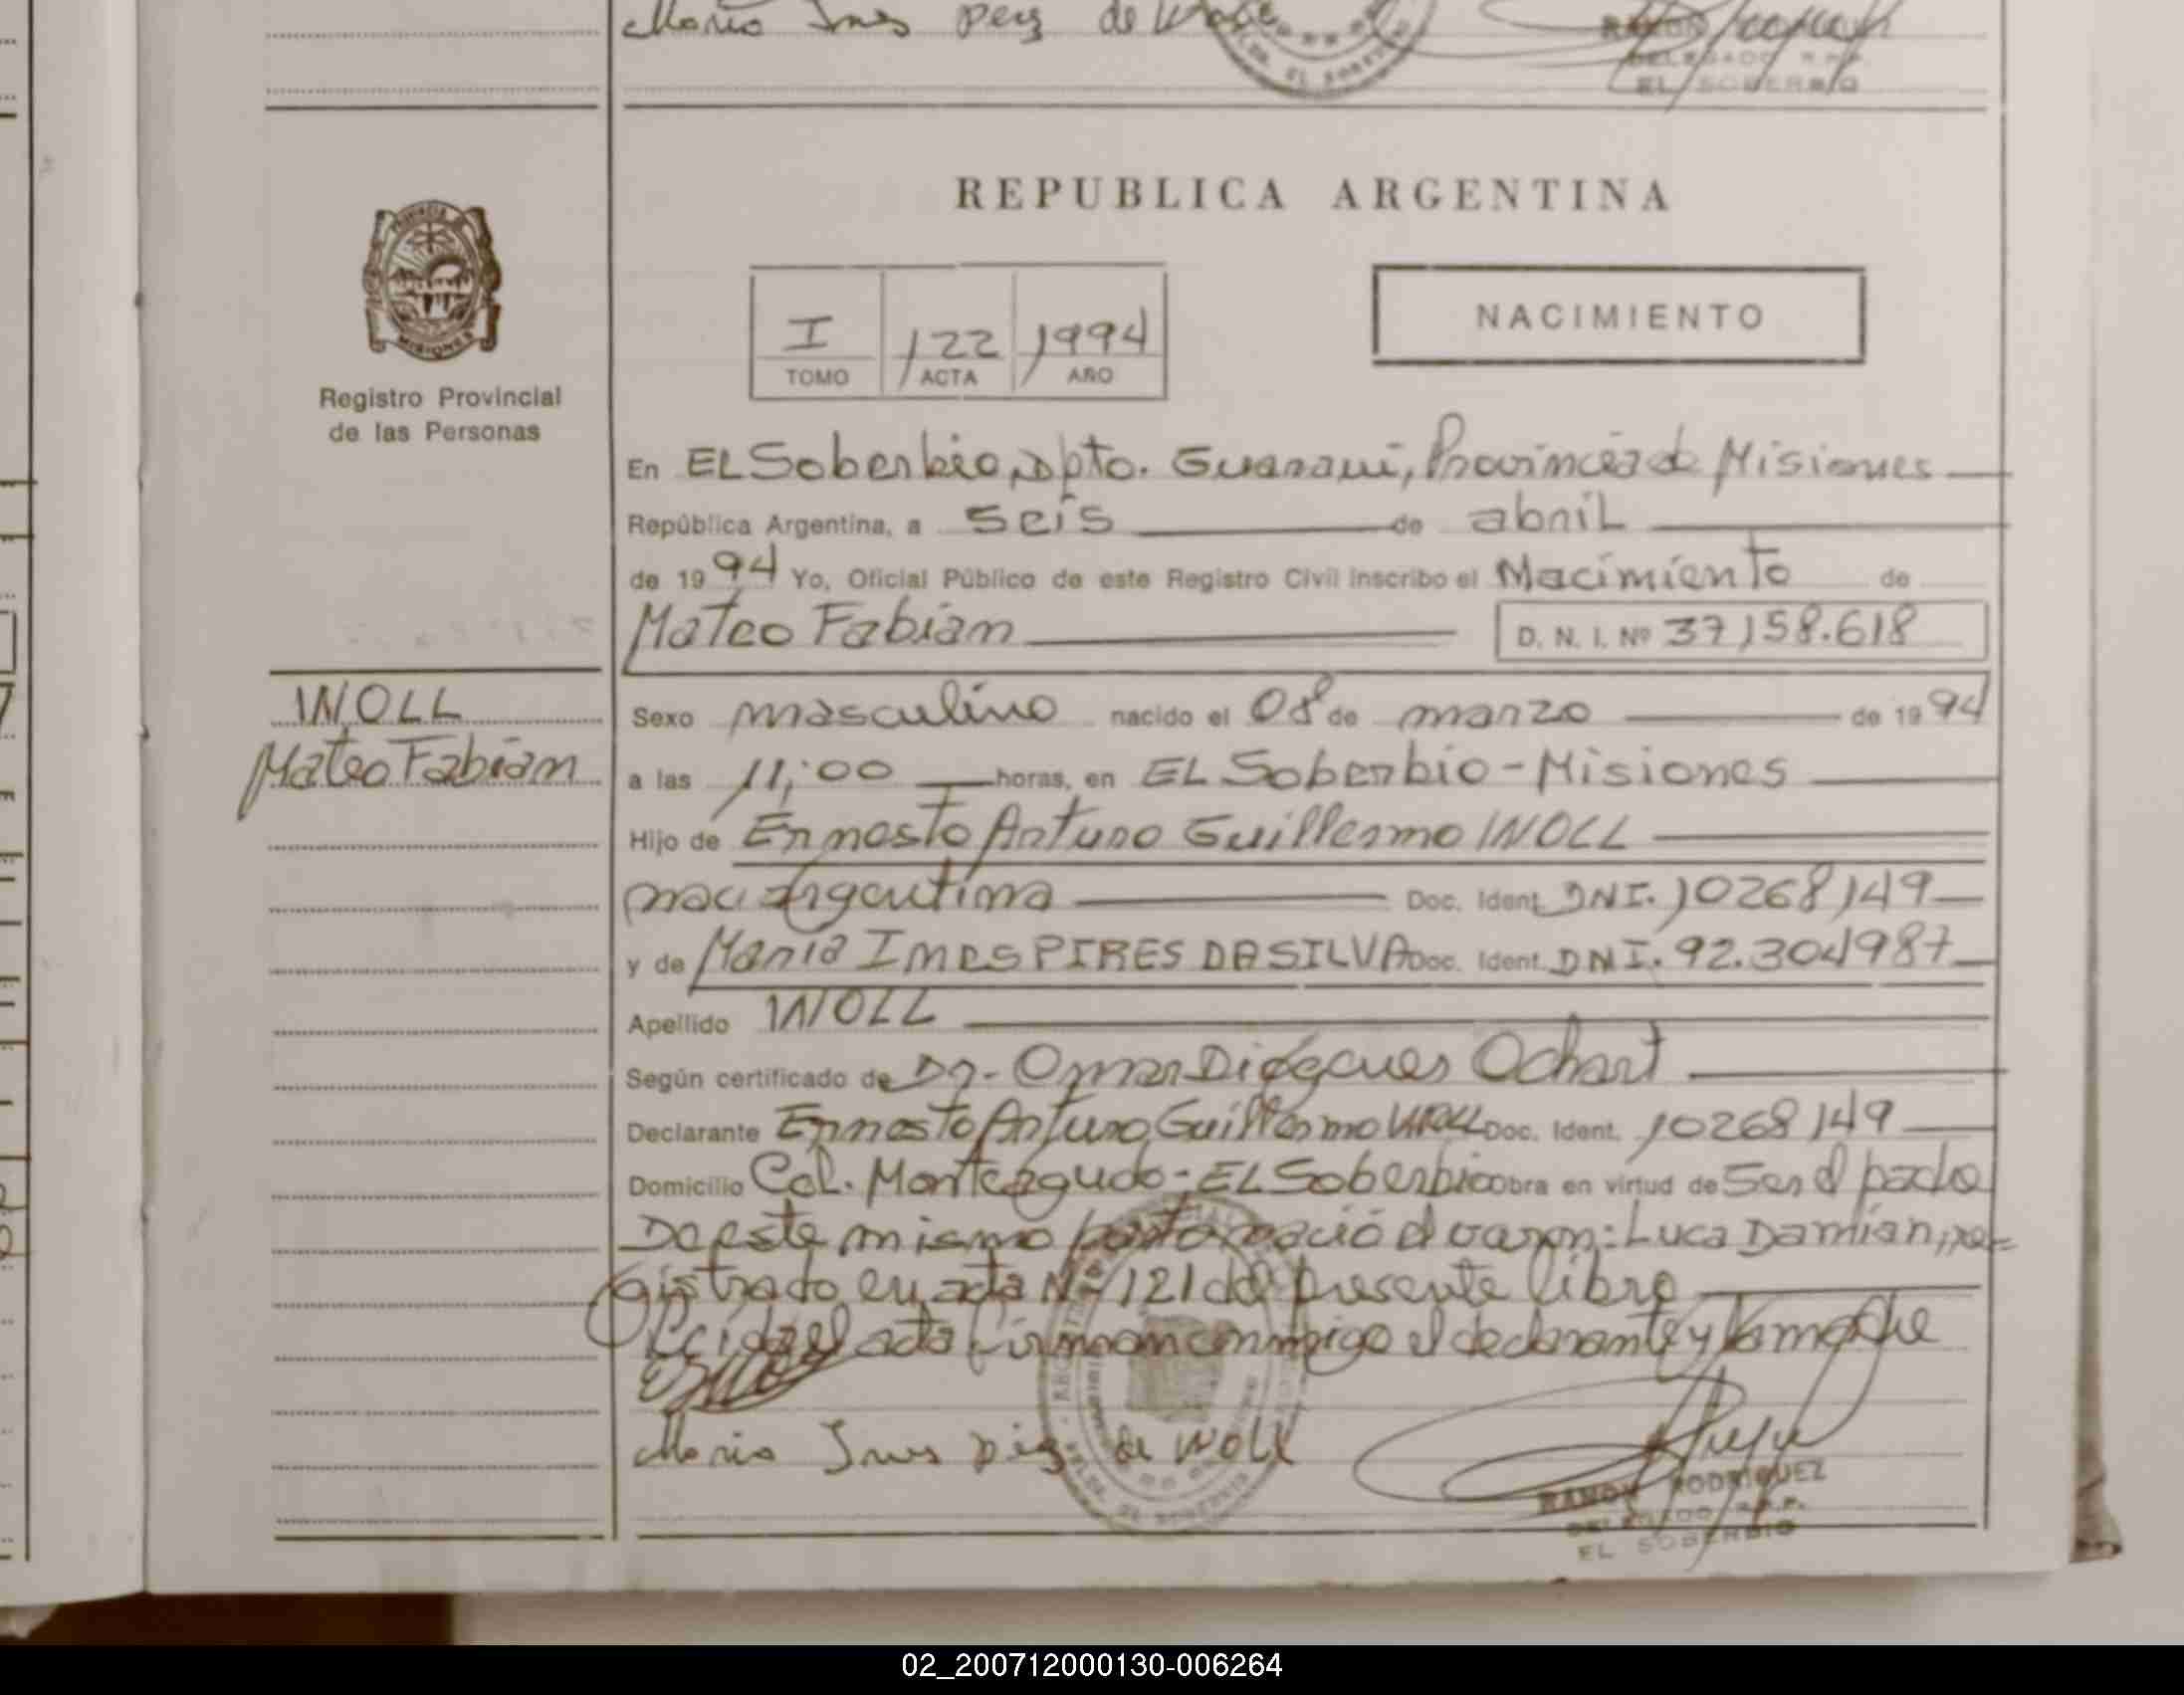 Maria Ines de
EL SOBERBIO
REPUBLICA ARGENTINA
I 122 1994
TOMO ACTA AÑO
NACIMIENTO
MISIONES
Registro Provincial
de las Personas
En EL Soberbio, Dpto. Guarani, Provincia de Misiones
República Argentina, a seis de abril
de 1994 Yo, Oficial Público de este Registro Civil inscribo el Nacimiento de
Mateo Fabián D. N. I. Nº 37158.618
WOLL
Mateo Fabián
Sexo masculino nacido el 08 de marzo de 1994
a las 11:00 horas, en EL Soberbio - Misiones
Hijo de Ernesto Arturo Guillermo WOLL
nac. Argentina Doc. Ident. DNI. 10268149
y de Maria Ines PIRES DA SILVA Doc. Ident. DNI. 92.304987
Apellido WOLL
Según certificado de Dr. Omar Diégues Ochart
Declarante Ernesto Arturo Guillermo WOLL Doc. Ident. 10268149
Domicilio Col. Monteagudo - EL Soberbio Obra en virtud de Ser el padre
De este mismo parto nació el varon: Luca Damián, re=
gistrado en acta Nº 121 del presente libro
Leida el acta firman conmigo el declarante y la madre
Maria Ines de WOLL
RAMON RODRIGUEZ
DELEGADO R.P.P.
EL SOBERBIO
02_200712000130-006264